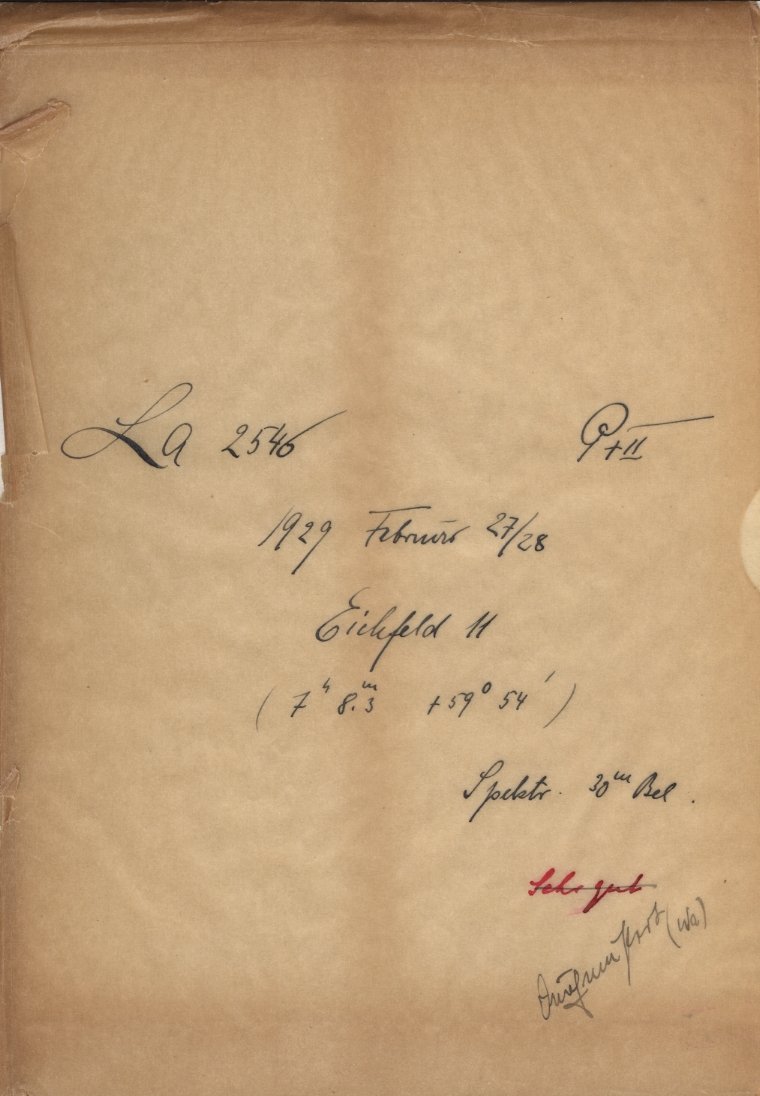 La 2546 P+II
1929 Februar 27/28
Eichfeld 11
( 7ʰ 8.ᵐ3 +59° 54′ )
Spektr. 30ᵐ Bel.
Sehr gut
(Wa)